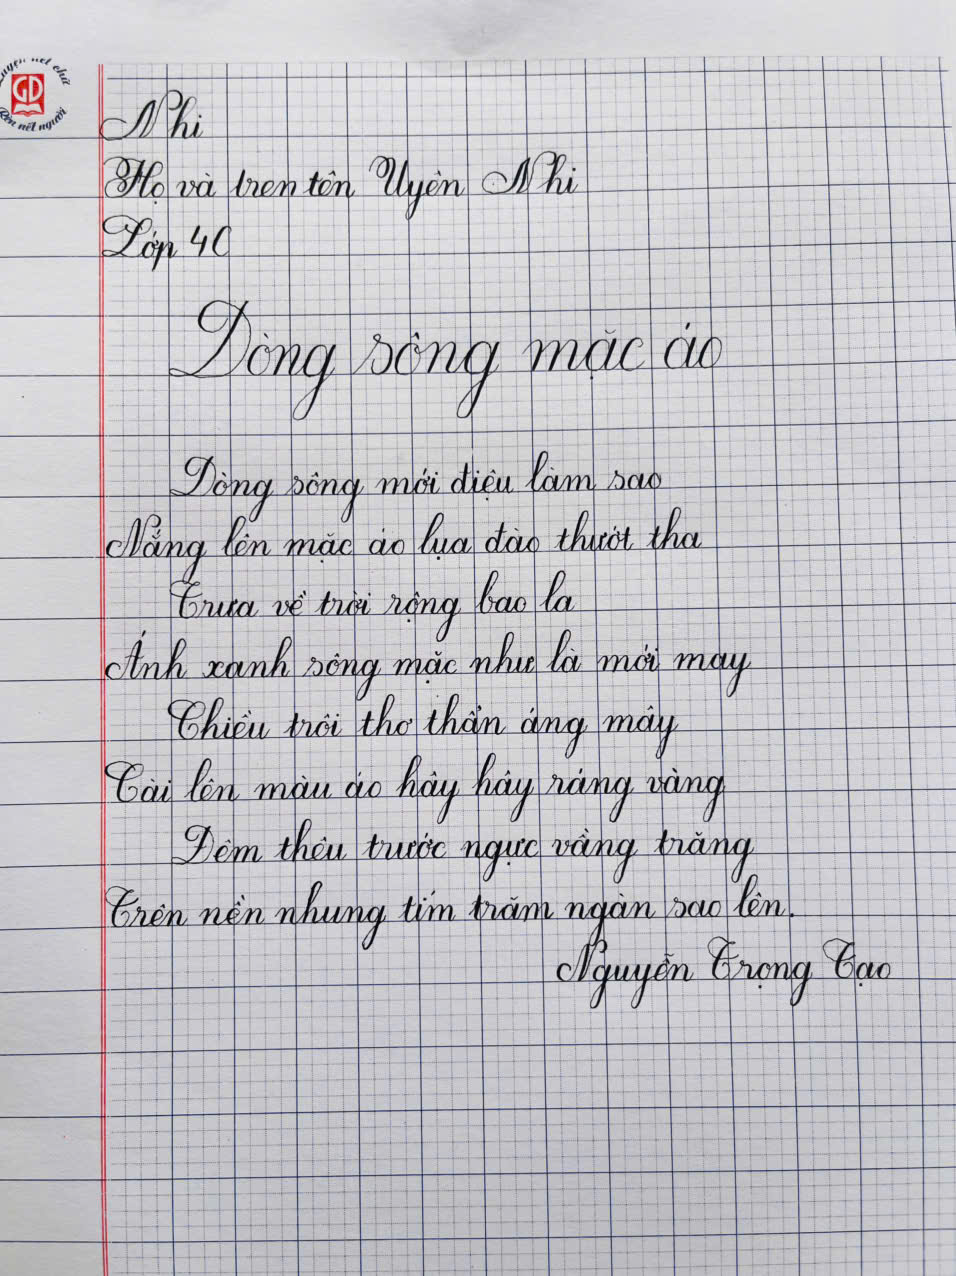 Luyện nét chữ
GD
Rèn nết người
Nhi
Họ và tren tên Uyên Nhi
Lớp 4C
Dòng sông mặc áo
Dòng sông mới điệu làm sao
Nắng lên mặc áo lụa đào thướt tha
Trưa về trời rộng bao la
Ánh xanh sông mặc như là mới may
Chiều trôi thơ thẩn áng mây
Cài lên màu áo hây hây ráng vàng
Đêm thêu trước ngực vầng trăng
Trên nền nhung tím trăm ngàn sao lên.
Nguyễn Trọng Tạo